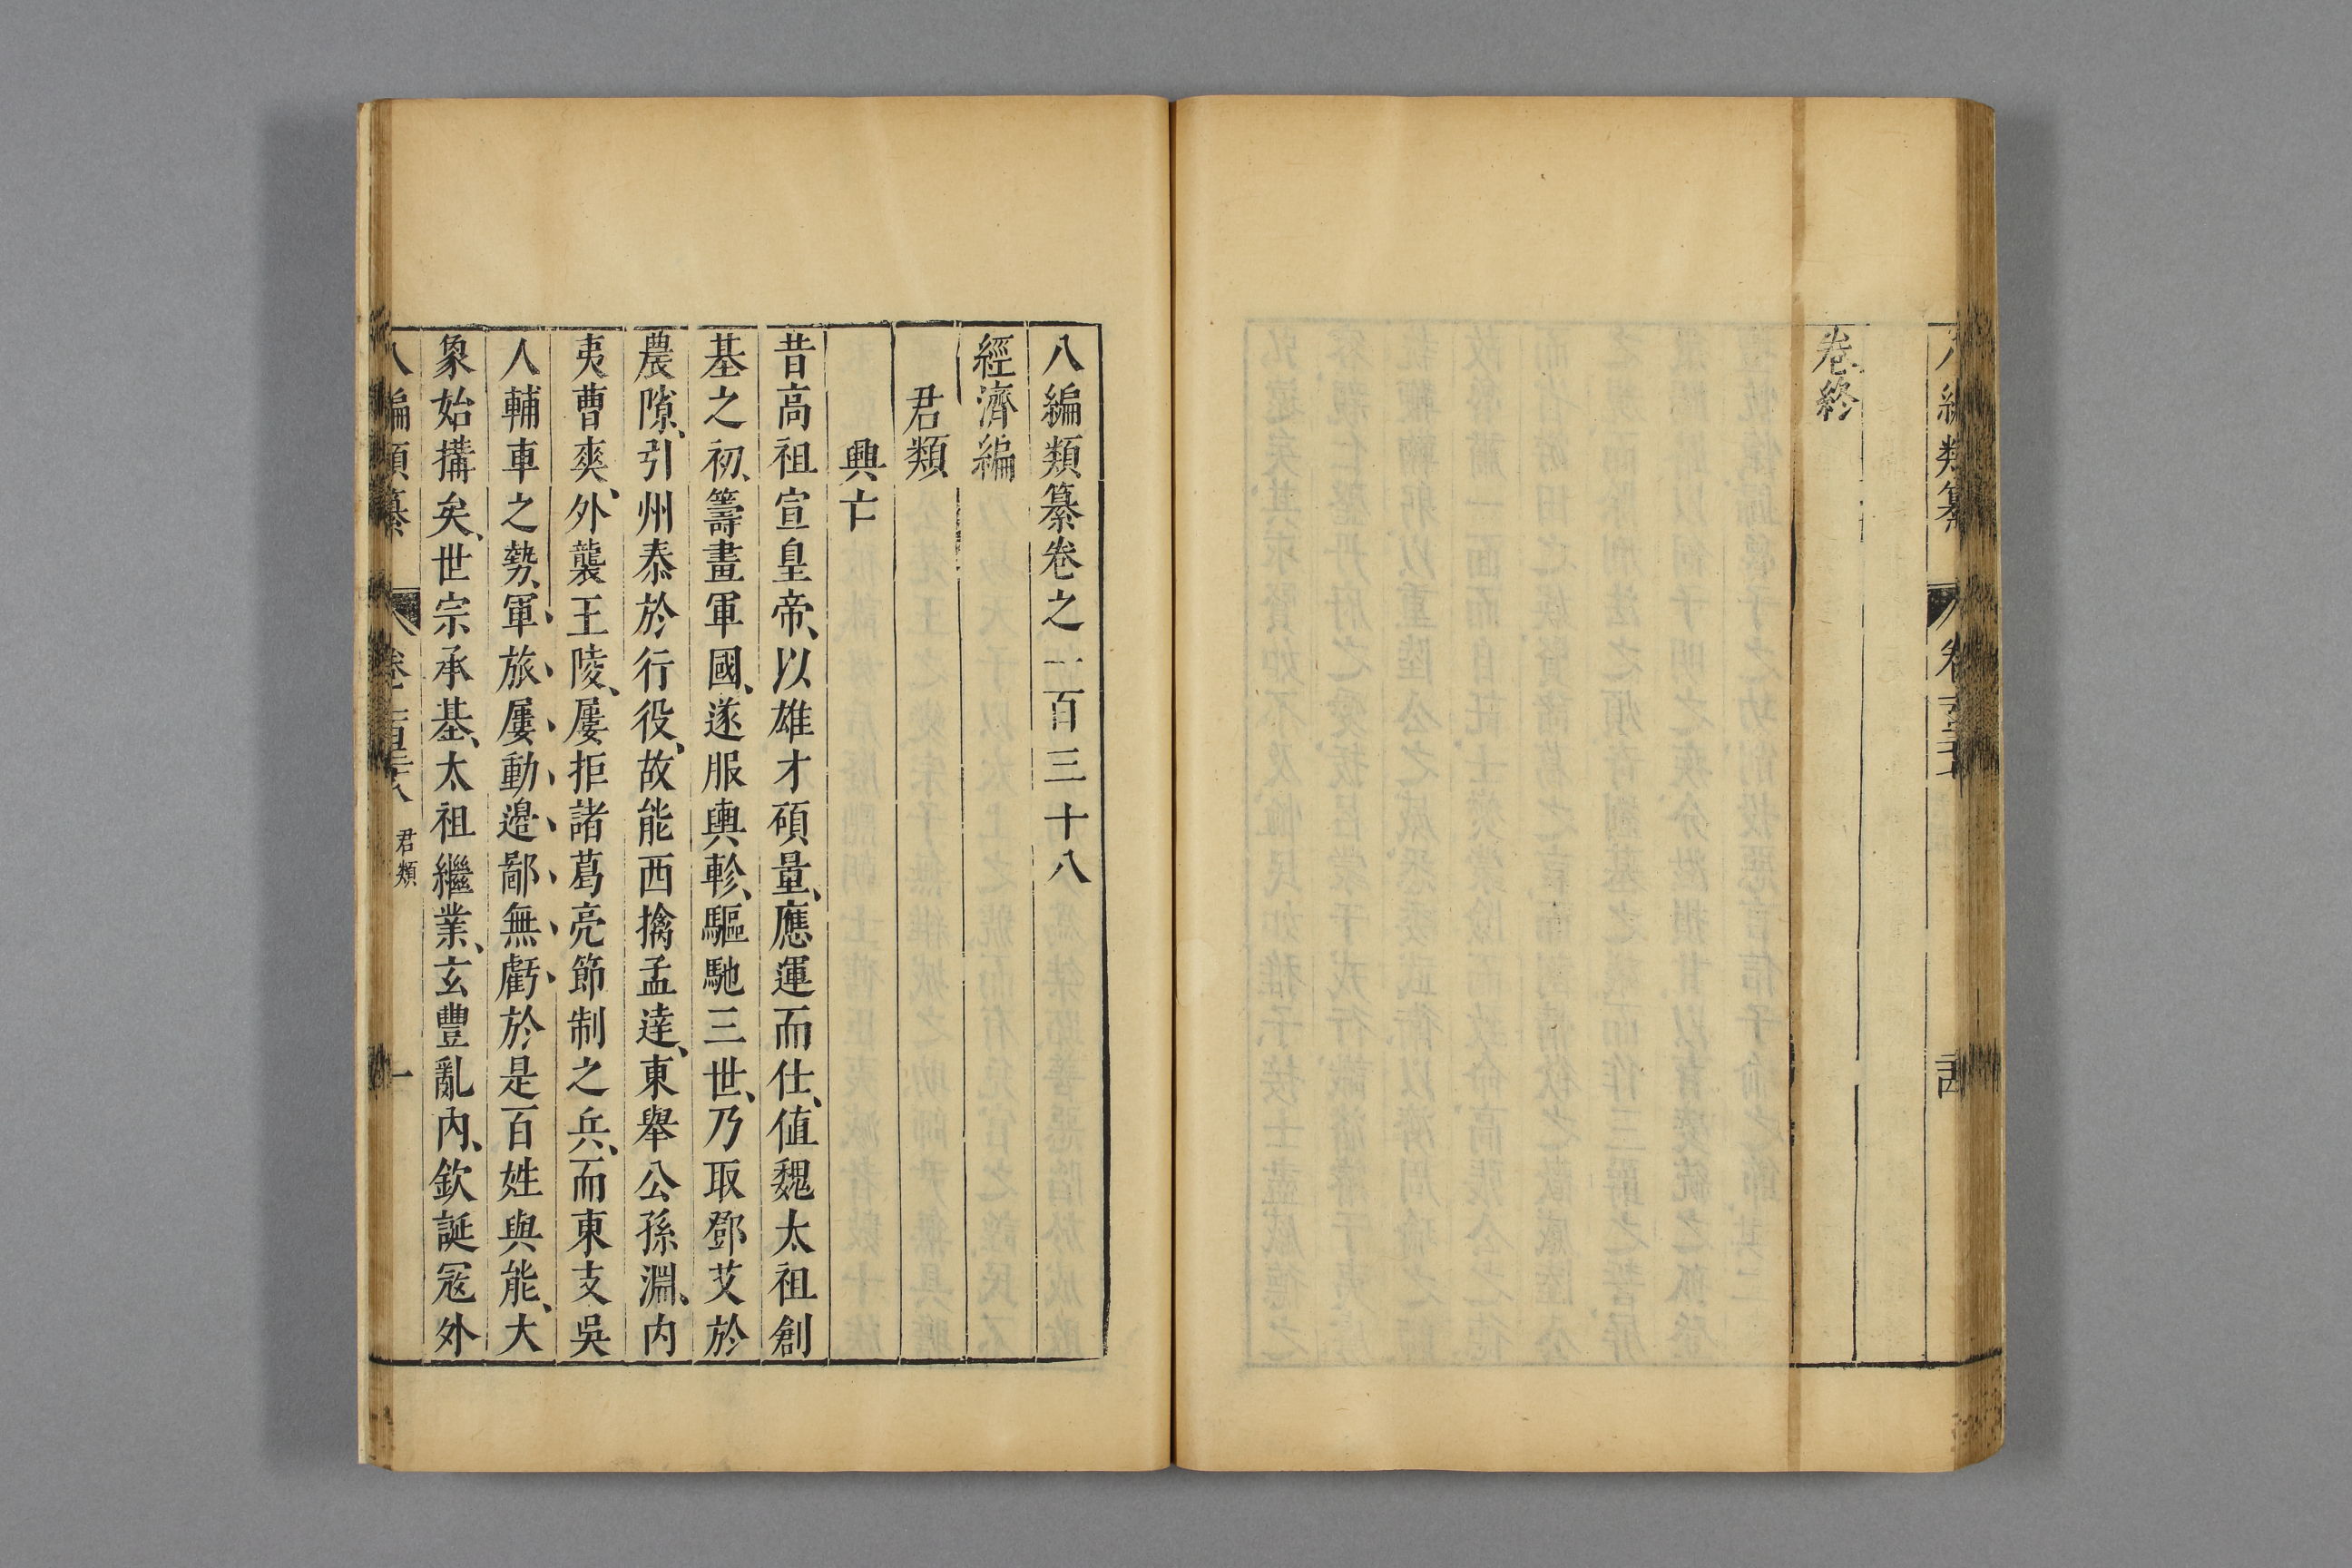 卷終
八編類纂卷之一百三十八
經濟編
君類
興亡
昔高祖宣皇帝、以雄才碩量、應運而仕、値魏太祖創
基之初、籌畫軍國、遂服輿軫、驅馳三世、乃取鄧艾於
農隙、引州泰於行役、故能西擒孟達、東舉公孫淵、内
夷曹爽、外襲王陵、屢拒諸葛亮節制之兵、而東支吳
人輔車之勢、軍旅屢動邊鄙無虧於是百姓與能、大
象始搆矣、世宗承基、太祖繼業、玄豐亂内、欽誕冦外
八編類纂 卷一百三十八 君類 一